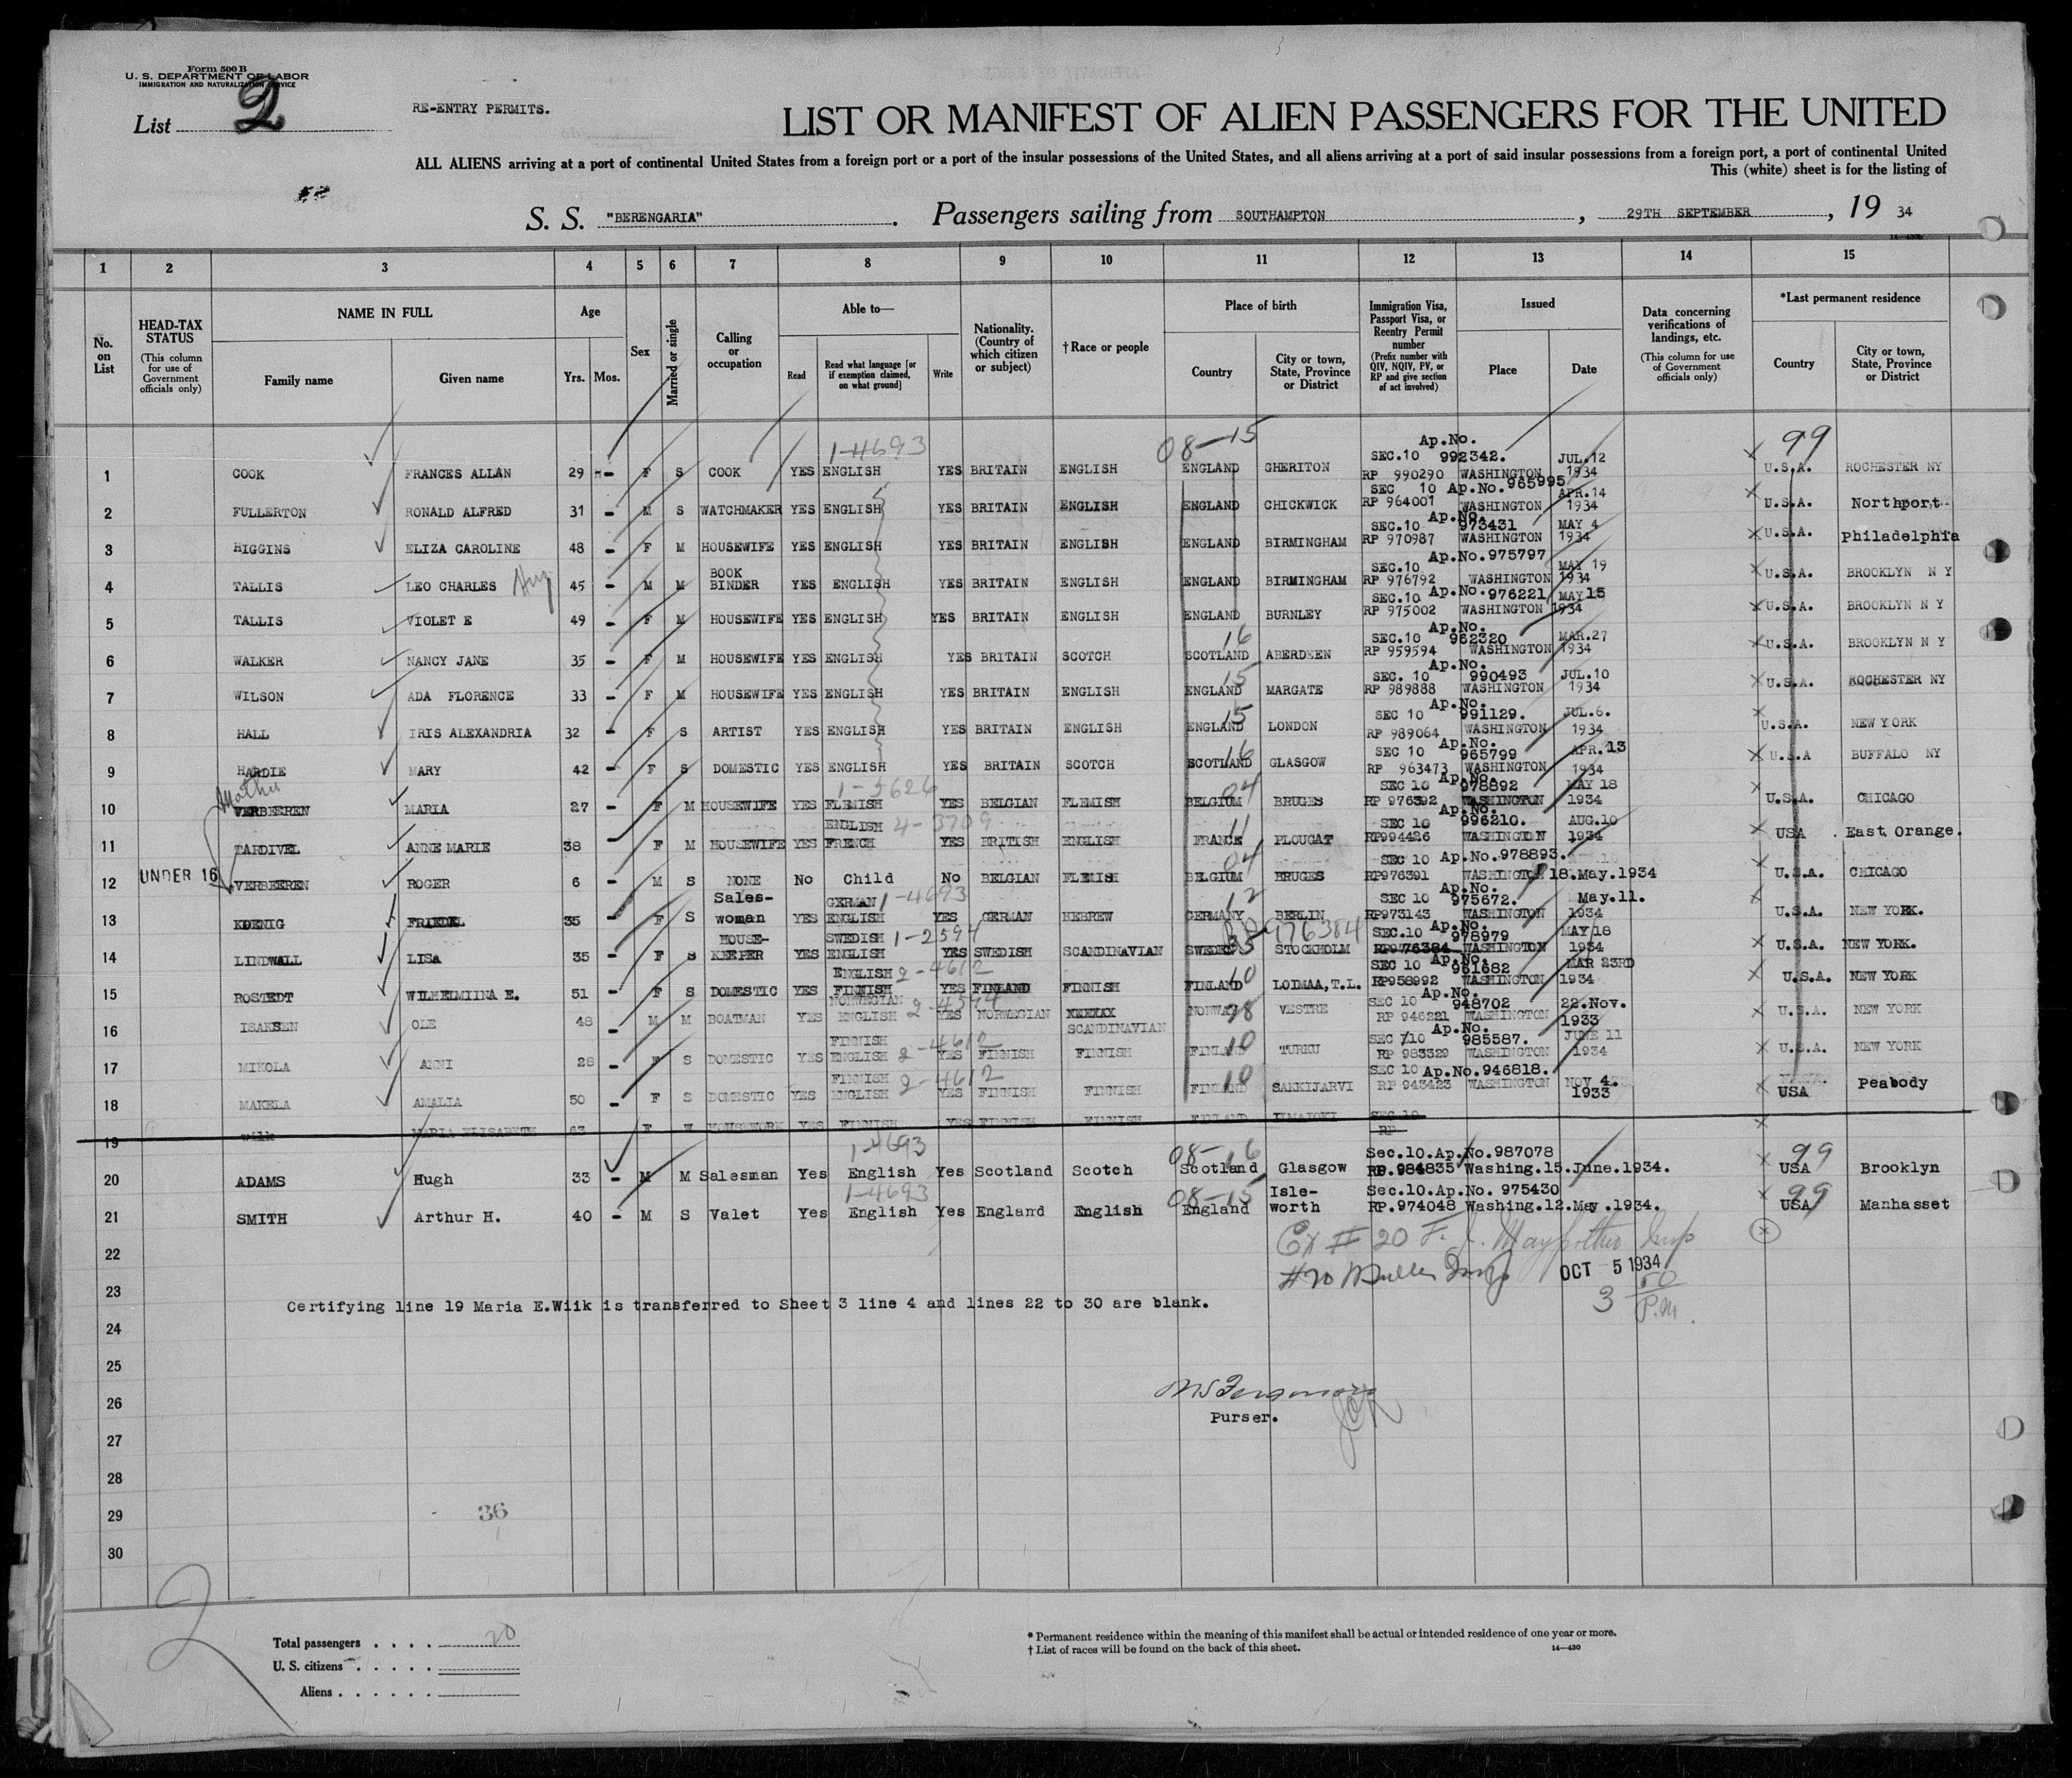 Form 500 B
U. S. DEPARTMENT OF LABOR
IMMIGRATION AND NATURALIZATION SERVICE
List 2
RE-ENTRY PERMITS.
LIST OR MANIFEST OF ALIEN PASSENGERS FOR THE UNITED
ALL ALIENS arriving at a port of continental United States from a foreign port or a port of the insular possessions of the United States, and all aliens arriving at a port of said insular possessions from a foreign port, a port of continental United
This (white) sheet is for the listing of
S. S. "BERENGARIA". Passengers sailing from SOUTHAMPTON, 29TH SEPTEMBER, 19 34
1 2 3 4 5 6 7 8 9 10 11 12 13 14 15
No. on List
HEAD-TAX STATUS (This column for use of Government officials only)
NAME IN FULL
Family name
Given name
Age
Yrs. Mos.
Sex
Married or single
Calling or occupation
Able to—
Read
Read what language [or if exemption claimed, on what ground]
Write
Nationality. (Country of which citizen or subject)
†Race or people
Place of birth
Country
City or town, State, Province or District
Immigration Visa, Passport Visa, or Reentry Permit number (Prefix number with QIV, NQIV, PV, or RP and give section of act involved)
Issued
Place
Date
Data concerning verifications of landings, etc. (This column for use of Government officials only)
*Last permanent residence
Country
City or town, State, Province or District
1-4693 08-15 Ap.No. 99
SEC.10 992342. JUL.12
1 COOK FRANCES ALLAN 29 - F S COOK YES ENGLISH YES BRITAIN ENGLISH ENGLAND GHERITON RP 990290 WASHINGTON 1934 U.S.A. ROCHESTER NY
SEC 10 Ap.No. 965995 APR.14
2 FULLERTON RONALD ALFRED 31 - M S WATCHMAKER YES ENGLISH YES BRITAIN ENGLISH ENGLAND CHICKWICK RP 964001 WASHINGTON 1934 U.S.A. Northport
Ap.No.
SEC.10 973431 MAY 4
3 HIGGINS ELIZA CAROLINE 48 - F M HOUSEWIFE YES ENGLISH YES BRITAIN ENGLISH ENGLAND BIRMINGHAM RP 970987 WASHINGTON 1934 U.S.A. Philadelphia
Ap.No.975797
SEC.10 MAY 19
4 TALLIS LEO CHARLES 45 - M M BOOK BINDER YES ENGLISH YES BRITAIN ENGLISH ENGLAND BIRMINGHAM RP 976792 WASHINGTON 1934 U.S.A. BROOKLYN N Y
SEC.10 Ap.No.976221 MAY 15
5 TALLIS VIOLET E 49 - F M HOUSEWIFE YES ENGLISH YES BRITAIN ENGLISH ENGLAND BURNLEY RP 975002 WASHINGTON 1934 U.S.A. BROOKLYN N Y
Ap.No.
16 SEC.10 962320 MAR.27
6 WALKER NANCY JANE 35 - F M HOUSEWIFE YES ENGLISH YES BRITAIN SCOTCH SCOTLAND ABERDEEN RP 959594 WASHINGTON 1934 U.S.A. BROOKLYN N Y
Ap.No.
15 SEC. 10 990493 JUL.10
7 WILSON ADA FLORENCE 33 - F M HOUSEWIFE YES ENGLISH YES BRITAIN ENGLISH ENGLAND MARGATE RP 989888 WASHINGTON 1934 U.S.A. ROCHESTER NY
Ap.No.
15 SEC 10 991129. JUL.6.
8 HALL IRIS ALEXANDRIA 32 - F S ARTIST YES ENGLISH YES BRITAIN ENGLISH ENGLAND LONDON RP 989064 WASHINGTON 1934 U.S.A. NEW YORK
Ap.No.
16 SEC 10 965799 APR.13
9 HARDIE MARY 42 - F S DOMESTIC YES ENGLISH YES BRITAIN SCOTCH SCOTLAND GLASGOW RP 963473 WASHINGTON 1934 U.S.A BUFFALO NY
Ap.No.
Mother 1-5626 04 SEC 10 978892 MAY 18
10 VERBEEREN MARIA 27 - F M HOUSEWIFE YES FLEMISH YES BELGIAN FLEMISH BELGIUM BRUGES RP 976392 WASHINGTON 1934 U.S.A. CHICAGO
Ap.No.
ENGLISH 4-3709 11 SEC 10 996210. AUG.10
11 TARDIVEL ANNE MARIE 38 F M HOUSEWIFE YES FRENCH YES BRITISH ENGLISH FRANCE PLOUGAT RP994426 WASHINGTON 1934 USA East Orange.
04 SEC 10 Ap.No.978893.
UNDER 16
12 VERBEEREN ROGER 6 - M S NONE No Child No BELGIAN FLEMISH BELGIUM BRUGES RP976391 WASHINGTON 18.May.1934 U.S.A. CHICAGO
Ap.No.
Sales- GERMAN 1-4693 12 SEC 10 975672. May.11.
13 KOENIG FRIEDEL 35 - F S woman YES ENGLISH YES GERMAN HEBREW GERMANY BERLIN RP973143 WASHINGTON 1934 U.S.A. NEW YORK.
HOUSE- SWEDISH 1-2594 RP976384 SEC.10 978979 MAY 18
14 LINDWALL LISA 35 - F S KEEPER YES ENGLISH YES SWEDISH SCANDINAVIAN SWEDEN STOCKHOLM RP976384 WASHINGTON 1934 U.S.A. NEW YORK.
Ap.No.
ENGLISH 2-4612 10 SEC 10 961682 MAR 23RD
15 ROSTEDT WILHELMIINA E. 51 - F S DOMESTIC YES FINNISH YES FINLAND FINNISH FINLAND LOIMAA,T.L. RP958992 WASHINGTON 1934 U.S.A. NEW YORK
Ap.No.
NORWEGIAN 2-4594 28 SEC 10 948702 22.Nov.
16 ISAKSEN OLE 48 - M M BOATMAN YES ENGLISH YES NORWEGIAN SCANDINAVIAN NORWAY VESTRE RP 946221 WASHINGTON 1933 U.S.A. NEW YORK
Ap.No.
FINNISH 2-4612 10 SEC 10 985587. JUNE 11
17 MIKOLA ANNI 28 - F S DOMESTIC YES ENGLISH YES FINNISH FINNISH FINLAND TURKU RP 983329 WASHINGTON 1934 U.S.A. NEW YORK
FINNISH 2-4612 10 SEC 10 Ap.No.946818.
18 MAKELA AMALIA 50 - F S DOMESTIC YES ENGLISH YES FINNISH FINNISH FINLAND SAKKIJARVI RP 943423 WASHINGTON NOV 4. 1933 USA Peabody
19 Wiik MARIA ELISABETH 63 F W HOUSEWORK YES FINNISH YES FINNISH FINNISH FINLAND SEC 10 RP
1-4693 08-16 Sec.10.Ap.No.987078 99
20 ADAMS Hugh 33 - M M Salesman Yes English Yes Scotland Scotch Scotland Glasgow RP.984835 Washing.15.June.1934. USA Brooklyn
1-4693 08-15 Isle- Sec.10.Ap.No. 975430 99
21 SMITH Arthur H. 40 - M S Valet Yes English Yes England English England worth RP.974048 Washing.12.May.1934. USA Manhasset
22
23
OCT 5 1934
3 50 P.M.
Certifying line 19 Maria E.Wiik is transferred to Sheet 3 line 4 and lines 22 to 30 are blank.
24
25
26
Purser.
27
28
29 36
30
2
Total passengers . . . . 20
U. S. citizens . . . . .
Aliens . . . . . .
* Permanent residence within the meaning of this manifest shall be actual or intended residence of one year or more.
† List of races will be found on the back of this sheet.
14—430